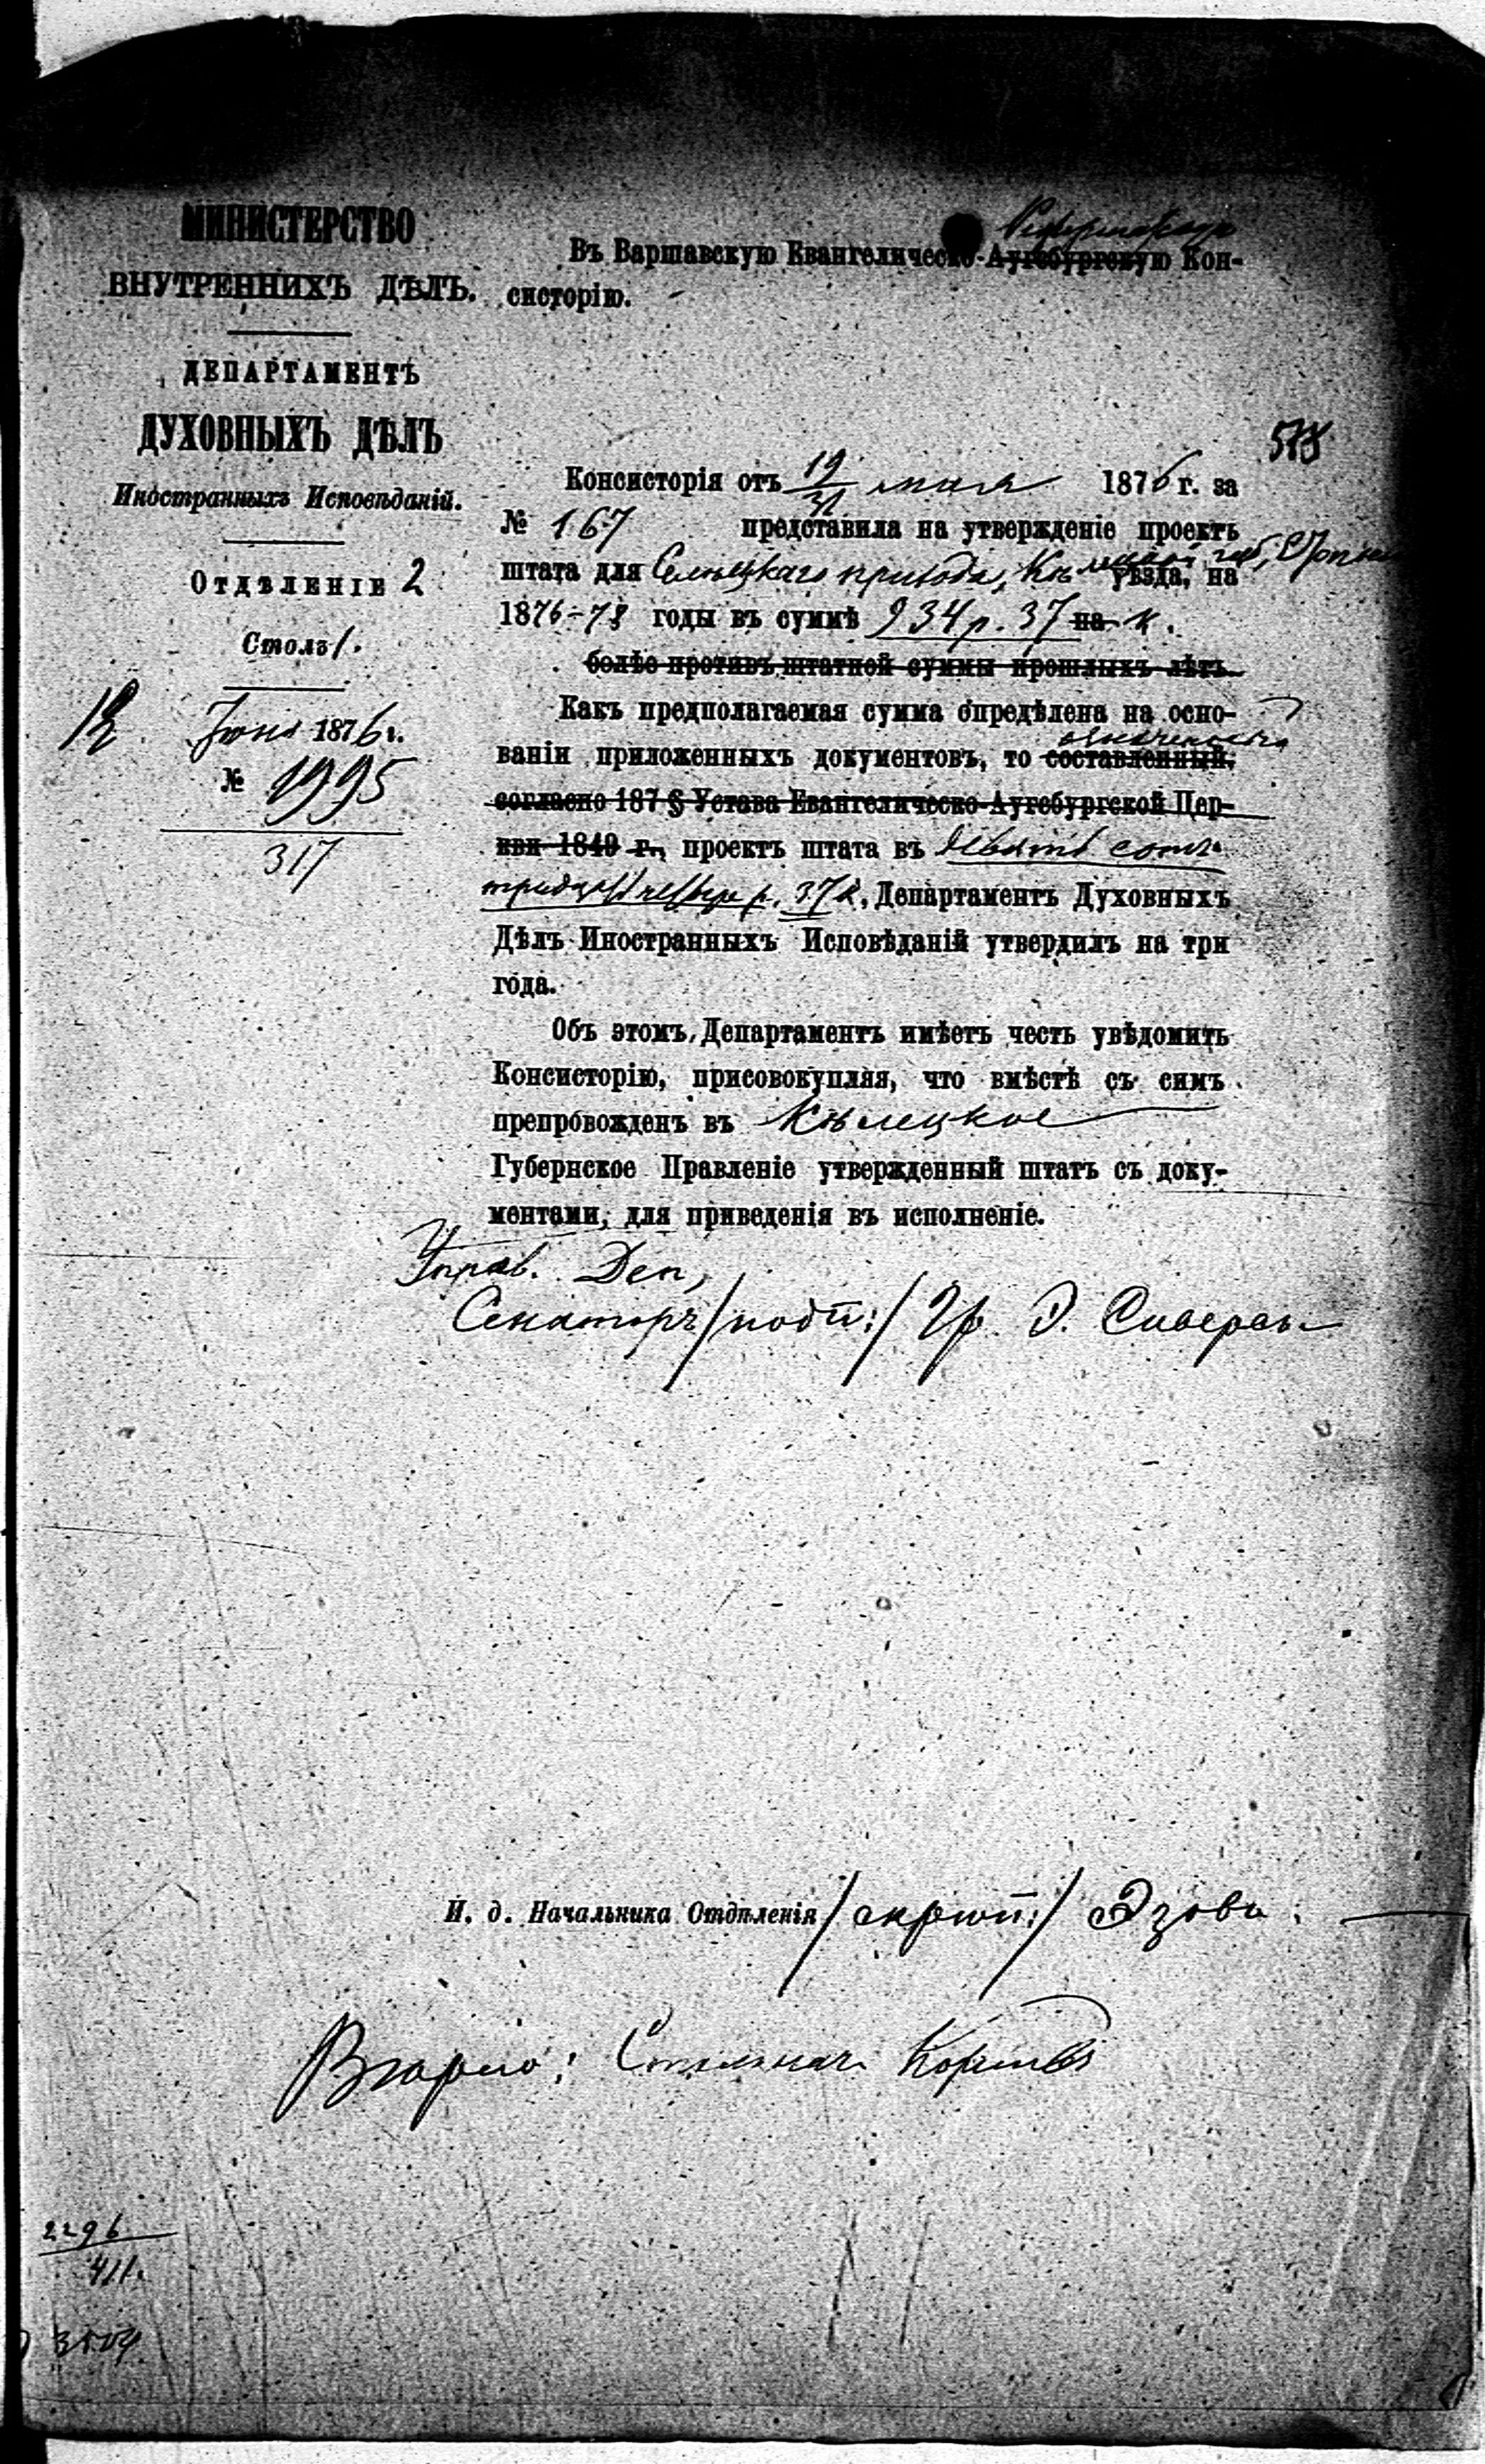 МИНИСТЕРСТВО
ВНУТРЕННИХЪ ДѢЛЪ.
ДЕПАРТАМЕНТЪ
ДУХОВНЫХЪ ДѢЛЪ
Иностранныхъ Исповѣданій.
Отдѣленіе 2
Столъ 1.
12 Іюня 1876 г.
№ 1995
317
Реформатскую
Въ Варшавскую Евангелическо-Аугсбургскую Кон-
систорію.
518
Консисторія отъ 19/31 мая 1876 г. за
№ 167 представила на утвержденіе проектъ
штата для Селецкаго прихода, Кѣлецкой губ, уѣзда, на
1876-78 годы въ суммѣ 934 р. 37 на к.
болѣе противъ штатной суммы прошлыхъ лѣтъ
Какъ предполагаемая сумма опредѣлена на осно-
ваніи приложенныхъ документовъ, то составленный,
согласно 187 § Устава Евангелическо-Аугсбургской Цер-
кви 1849 г., проектъ штата въ девять сотъ
тридцать четыре р. 37 к., Департаментъ Духовныхъ
Дѣлъ Иностранныхъ Исповѣданій утвердилъ на три
года.
Объ этомъ Департаментъ имѣетъ честь увѣдомить
Консисторію, присовокупляя, что вмѣстѣ съ симъ
препровожденъ въ Кѣлецкое
Губернское Правленіе утвержденный штатъ съ доку-
ментами, для приведенія въ исполненіе.
Управ. Деп,
Сенаторъ /подп:/ Гр. Э. Сиверсъ
И. д. Начальника Отдѣленія /скрѣп:/ Эзовъ.
Вѣрно: Столонач.
2296
411.